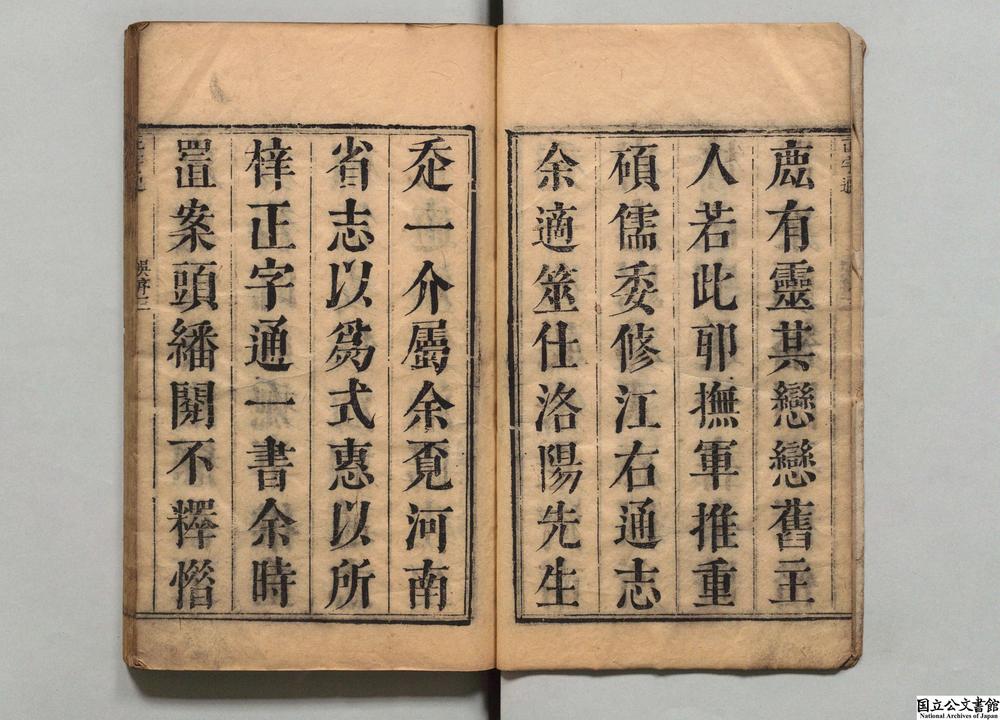 麃有靈其戀戀舊主
人若此䢴撫軍推重
碩儒委修江右通志
余適筮仕洛陽先生
走一介屬余覔河南
省志以爲式惠以所
梓正字通一書余時
置案頭繙閱不釋憯
正字通
国立公文書館
National Archives of Japan